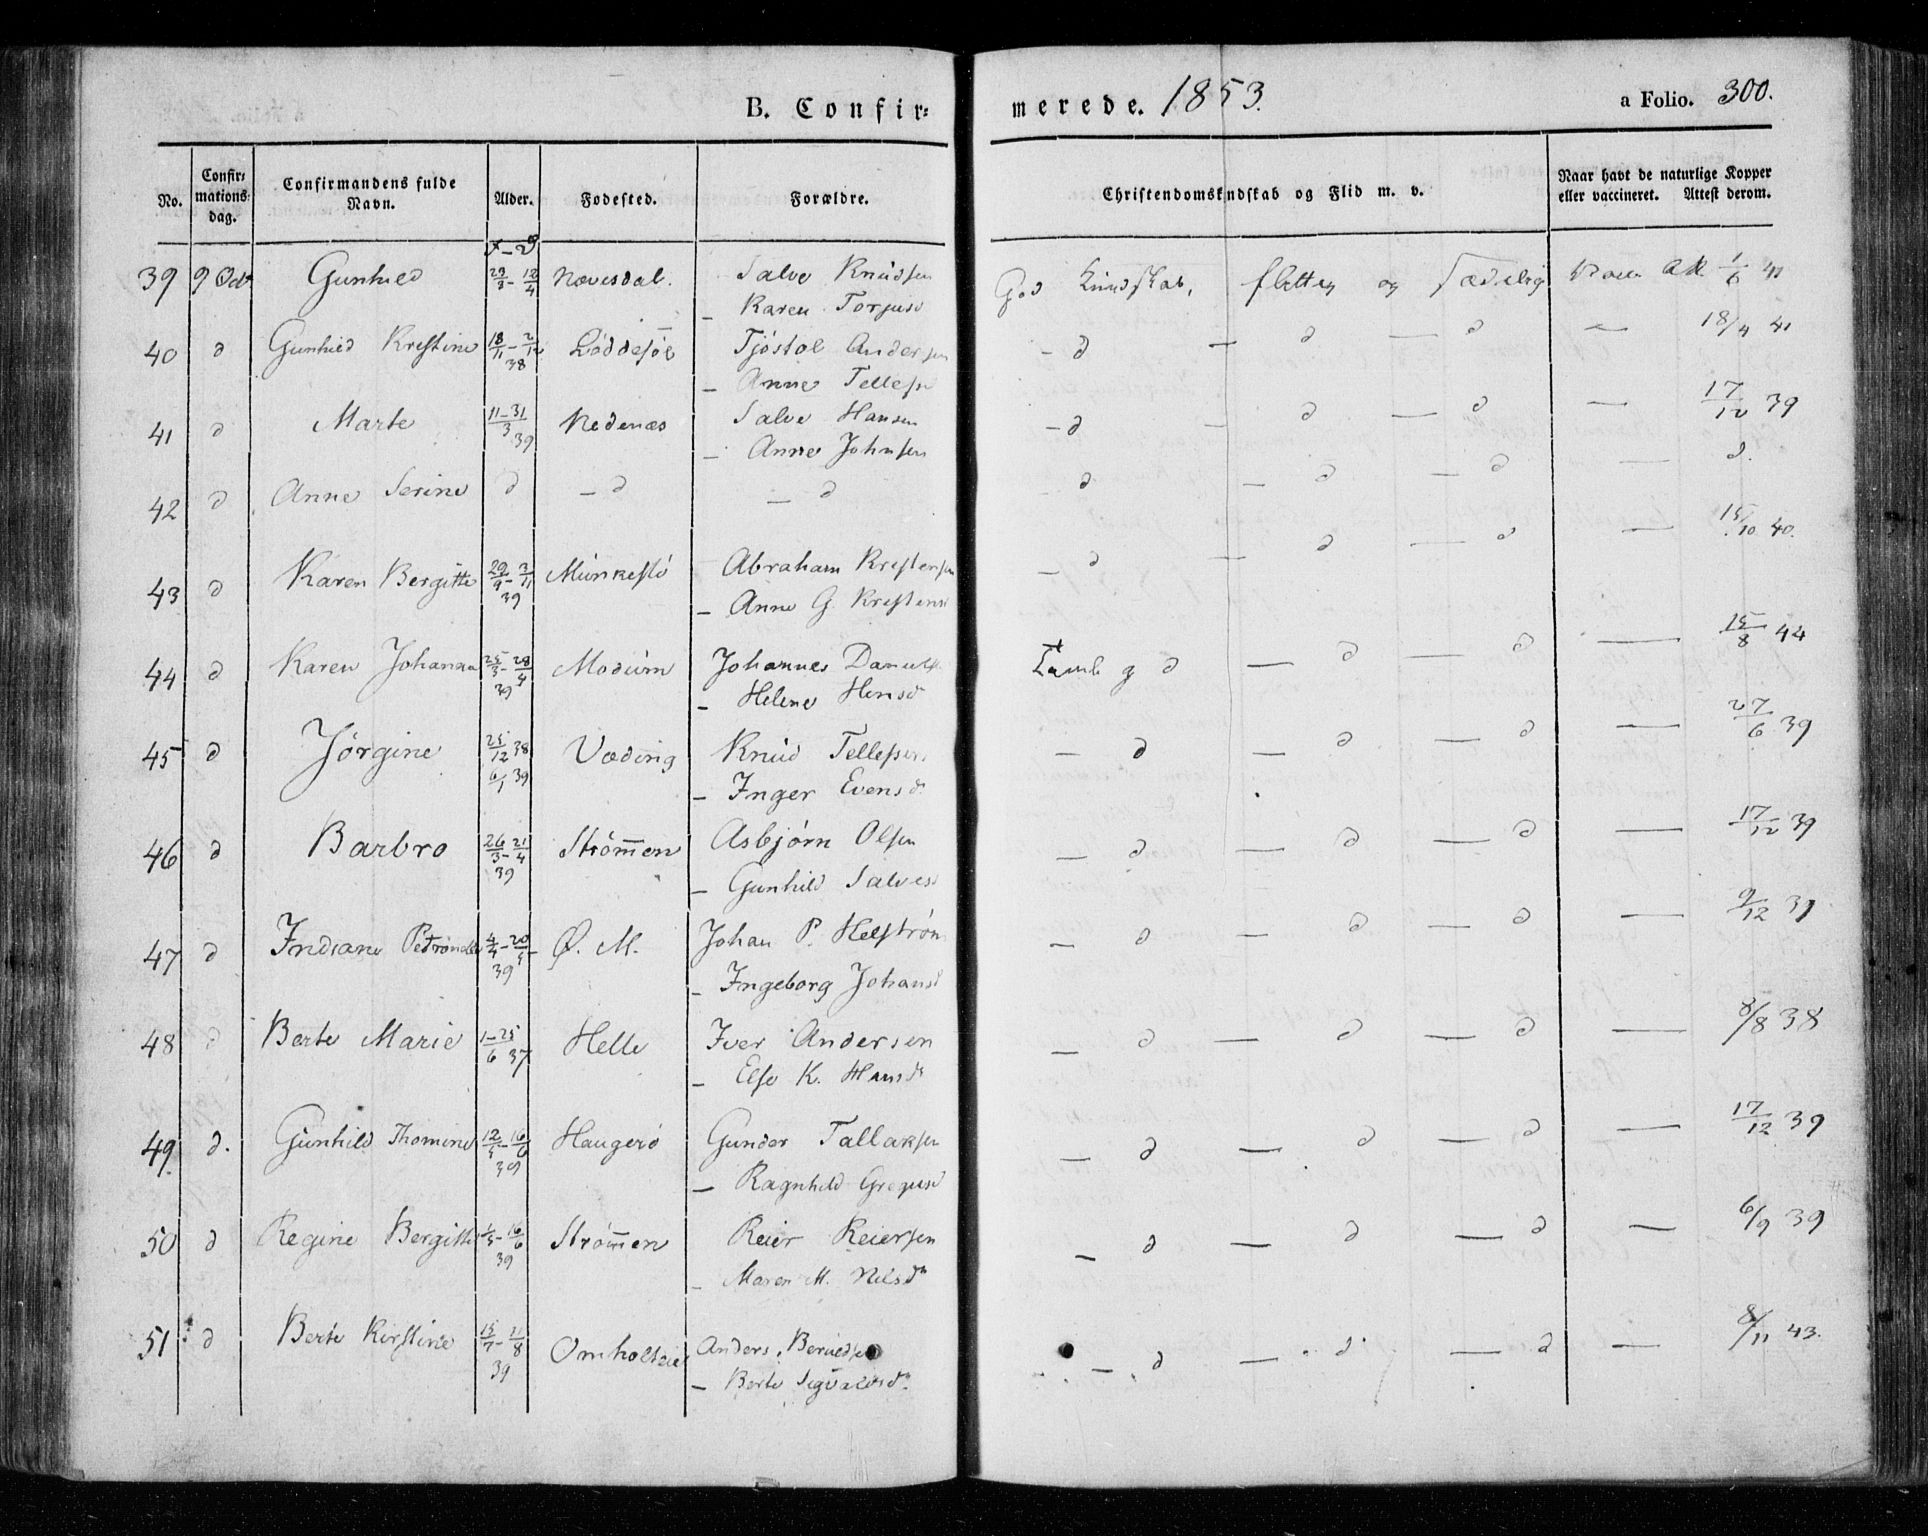 B. Confir=
merede. 1853.
a Folio. 300.
No. Confir=mations=dag. Confirmandens fulde Navn. Alder. Fødested. Forældre. Christendomskndskab og Flid m. v. Naar havt de naturlige Kopper eller vaccineret. Attest derom.
39 9 Oct Gunhild 12/4 Nævesdal. Salve Knudsen God Kundskab, flittig og sædelig 1/6 41
– Karen Torjusd
40 d Gunhild Kristine 18/11 – 2/12 38 Løddesøl Tjøstol Andersen – d – d – d – 18/4 41
– Anne Tellefsd
41 d Marte 11–31/3 39 Nedenæs Salve Hansen – d – d – d – 17/12 39
– Anne Johnsen
42 d Anne Serine d – d – d – d – d – d – d.
43 d Karen Bergitte 29/9 – 3/11 39 Munkestø Abraham Kristensen – d – d – d – 15/10 40.
– Anne G. Kristensd
44 d Karen Johanna 25/3 – 28/4 39 Modum Johannes Danielse g d – d – d – 15/8 44
– Helene Hensd
45 d Jørgine 25/12 38 6/1 39 Væding Knud Tellefsen – d – d – d – 27/6 39
– Inger Evensd
46 d Barbro 26/3 – 21/4 39 Strømmen Asbjørn Olsen – d – d – d – 17/12 39
– Gunhild Salvesd
47 d Indiane Petronelle 4/4 – 20/5 39 Ø. M. Johan P. Helstrøm – d – d – d – 9/12 39
– Ingeborg Johansd
48 d Berte Marie 1–25/6 37 Helle Iver Andersen – d – d – d – 8/8 38
– Else K. Hansd
49 d. Gunhild Thomine 12/5 – 16/6 39 Haugerø Gunder Tallaksen – d – d – d – 17/12 39
– Ragnhild Gregusd
50 d Regine Bergitte 4/5 – 16/6 39 Strømmen Reier Reiersen – d – d – d – 6/9 39
– Maren M. Nilsd
51 d Berte Kirstine 15/7 – 11/8 39 Omholteie Anders Berulsen – d – d – d – 8/11 43.
– Berte Sigvaldsd